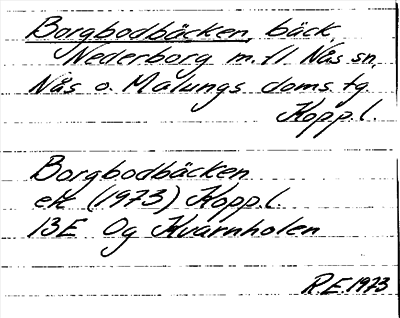 Borgbodbäcken, bäck,
Nederborg m. fl. Nås sn,
Nås o. Malungs doms. tg
Kopp. l.
Borgbodbäcken
ek (1973) Kopp. l.
13E Og Kvarnholen
R.E. 1973